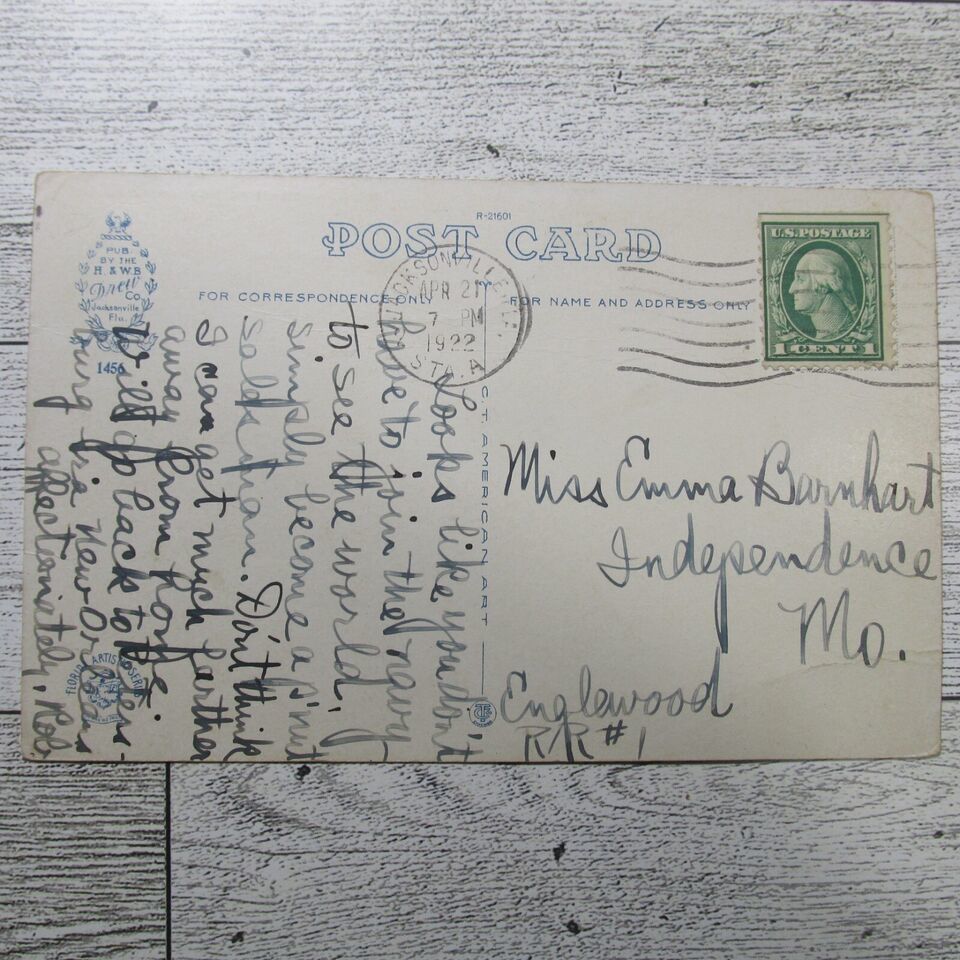 R-21601
POST CARD
PUB
BY THE
H. & W.B
Drew
Co.
Jacksonville
Fla.
1456
FOR CORRESPONDENCE ONLY
FOR NAME AND ADDRESS ONLY
JACKSONVILLE, FLA.
APR 21
7 PM
1922
STA. A
U.S. POSTAGE
1 CENT 1
C.T. AMERICAN ART
Looks like you don't
have to join the navy
to see the world,
simply become a p'nut
salesman. Don't think
I can get much farther
away from home.
Will go back to
burg via New Orleans
affectionately, Rob
Miss Emma Barnhart
Independence
Mo.
Englewood
R/R #1
FLORIDA ARTISTIC SERIES